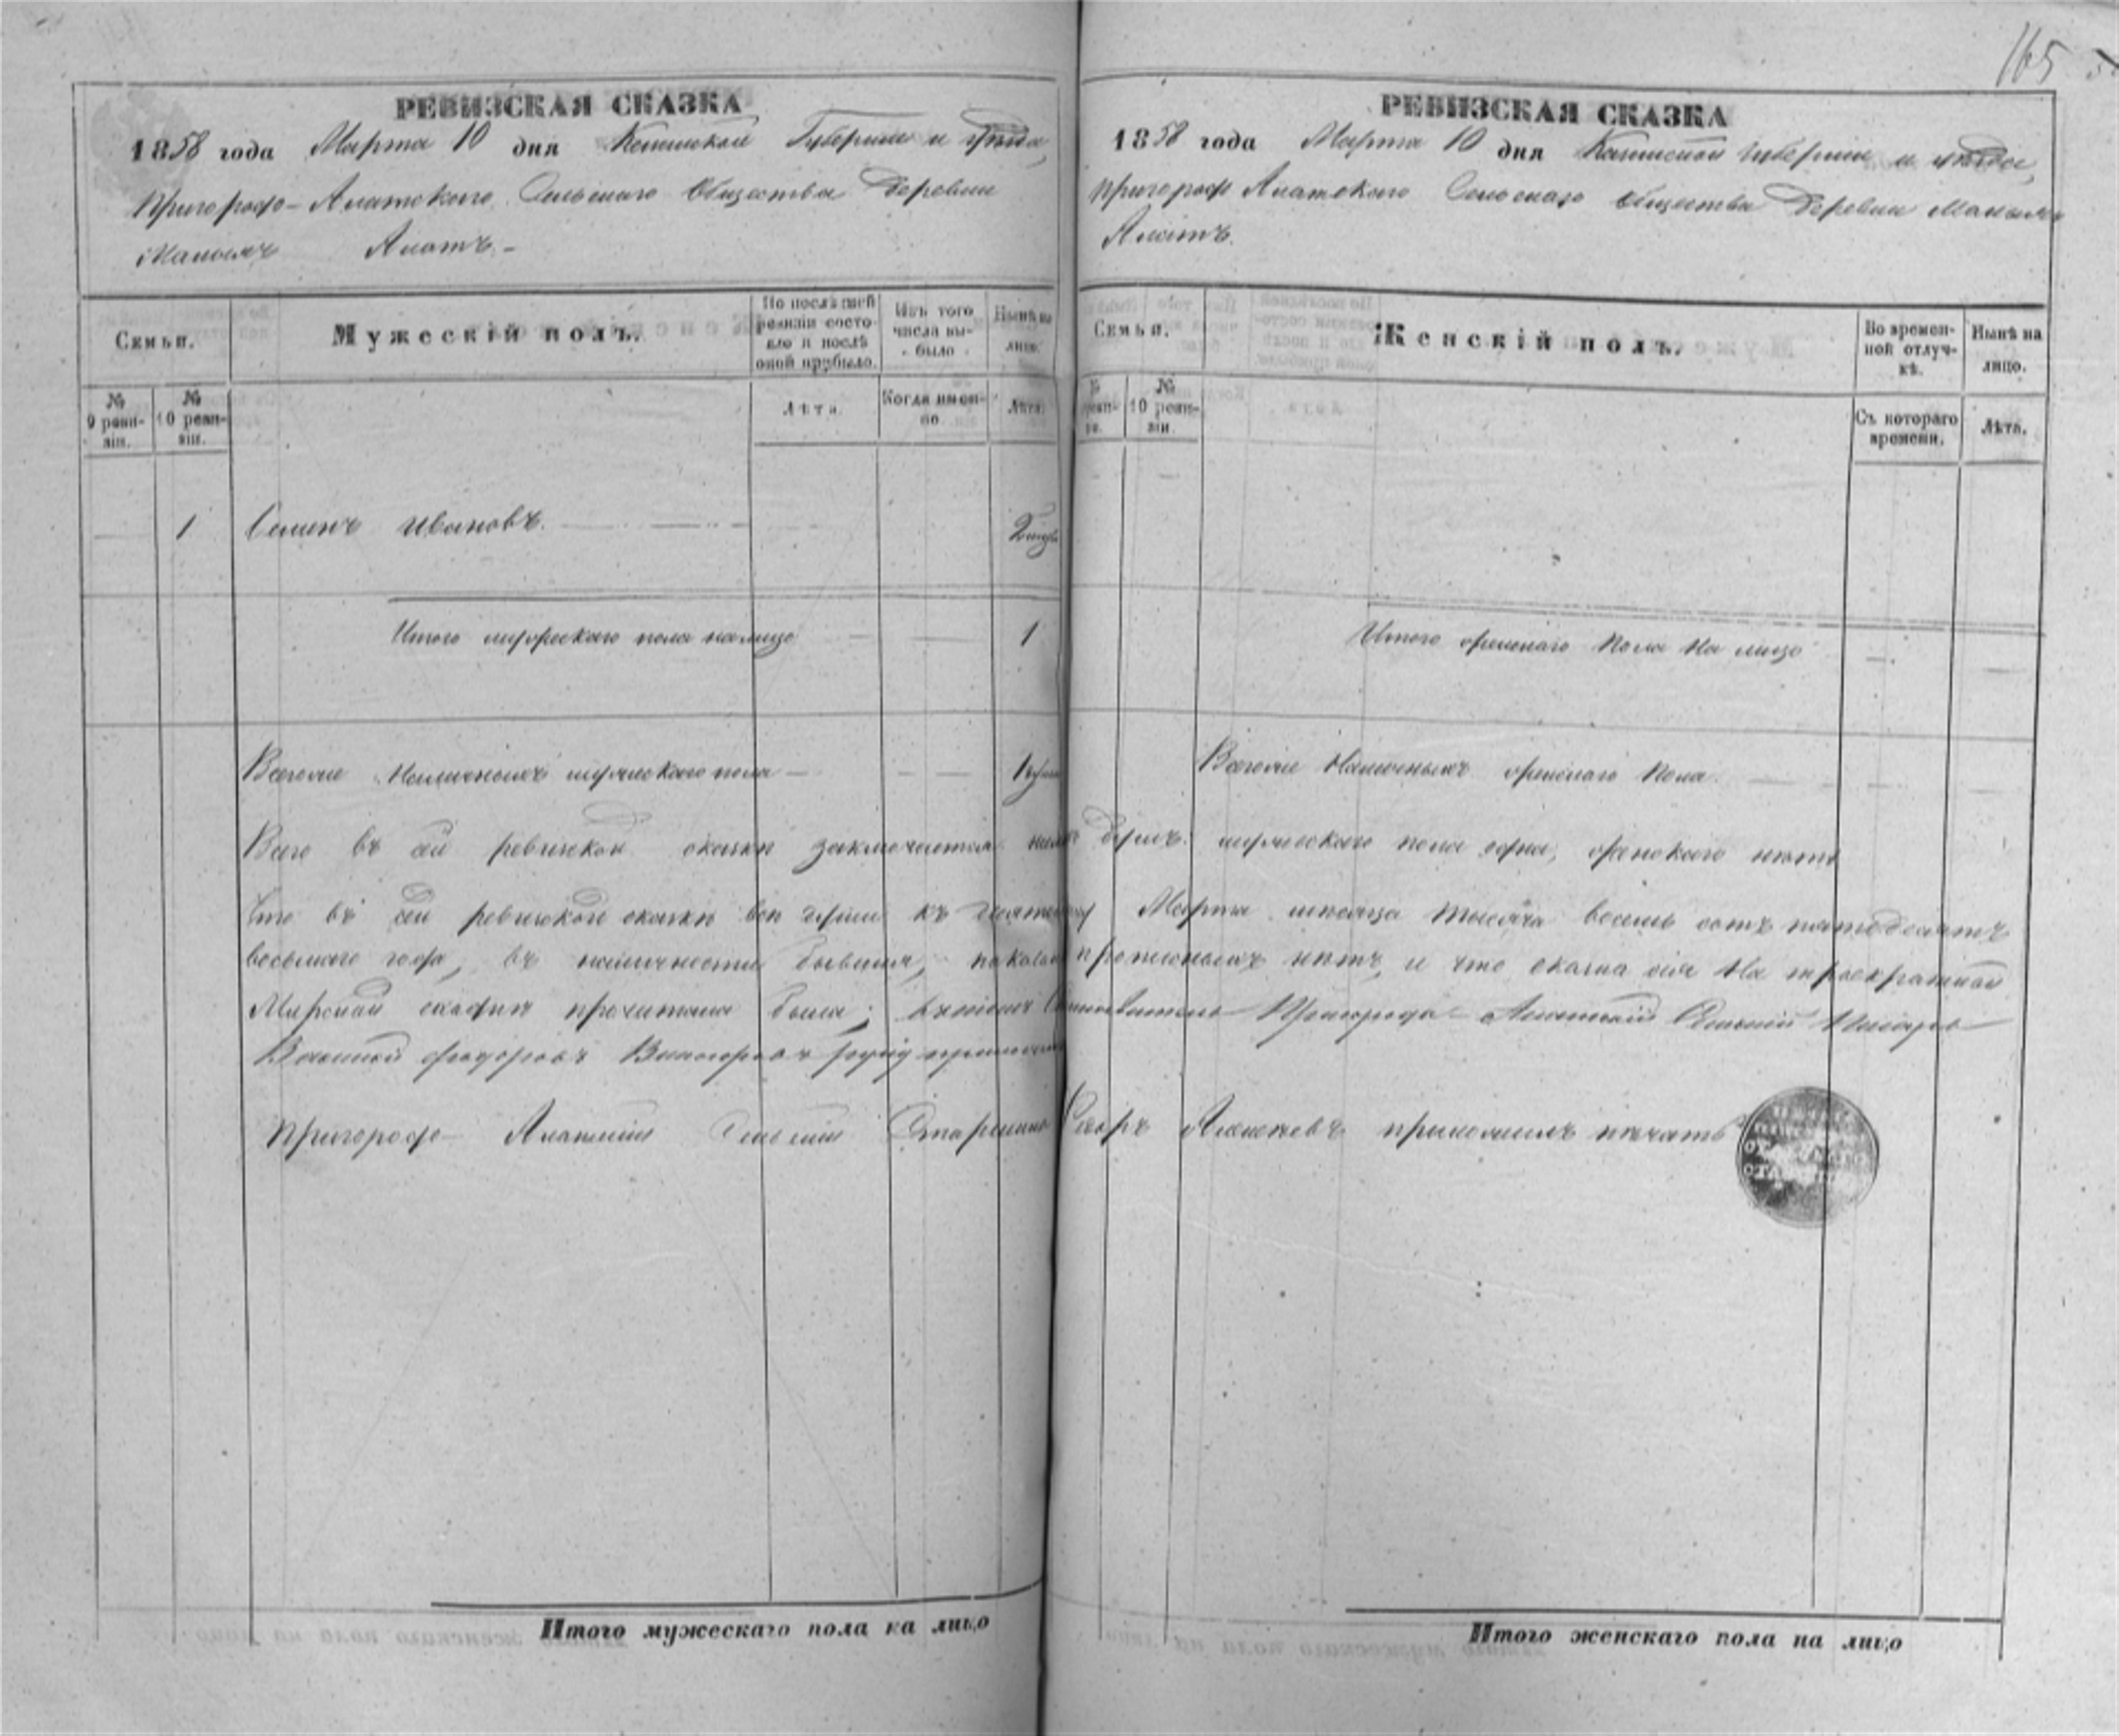 165
РЕВИЗСКАЯ СКАЗКА
1858 года Марта 10 дня Казанской Губернии и уѣзда,
Пригород-Алатскаго Сельскаго Общества Деревни
Малыхъ Алатъ.-
Семьи.
Мужескій полъ.
По послѣдней ревизіи состояло и послѣ оной прибыло.
Изъ того числа выбыло
Нынѣ на лицо.
№ 9 ревизіи.
№ 10 ревизіи.
Лѣта.
Когда именно
Лѣта.
1 Семенъ Ивановъ.
Итого мужескаго пола налицо 1
Всего же наличныхъ мужескаго пола 1
РЕВИЗСКАЯ СКАЗКА
1858 года Марта 10 дня Казанской губерніи и уѣзда,
Пригород Алатскаго Сельскаго Общества Деревни Малыхъ
Алатъ.
Семьи.
Женскій полъ.
Во временной отлучкѣ.
Нынѣ на лицо.
№ ревизіи.
№ 10 ревизіи.
Съ котораго времени.
Лѣта.
Итого женскаго Пола На лицо
Всего же Наличныхъ женскаго Пола.
Всего въ сей ревизской сказкѣ заключается душъ: мужескаго пола одна, женскаго нѣтъ
Что въ сей ревизской сказкѣ всѣ души къ Марта мѣсяца тысяча восемь сотъ пятьдесятъ
восьмаго года, въ наличности бывшія, показаны прописныхъ нѣтъ, и что сказка сія На троекратной
Мірской сходкѣ прочитана была; въ томъ Пригорода Алатскій Сельскій Писарь
Василій Федоровъ руку приложилъ
Пригород Алатскій Сельскій Старшина приложилъ печать
Итого мужескаго пола на лицо
Итого женскаго пола на лицо